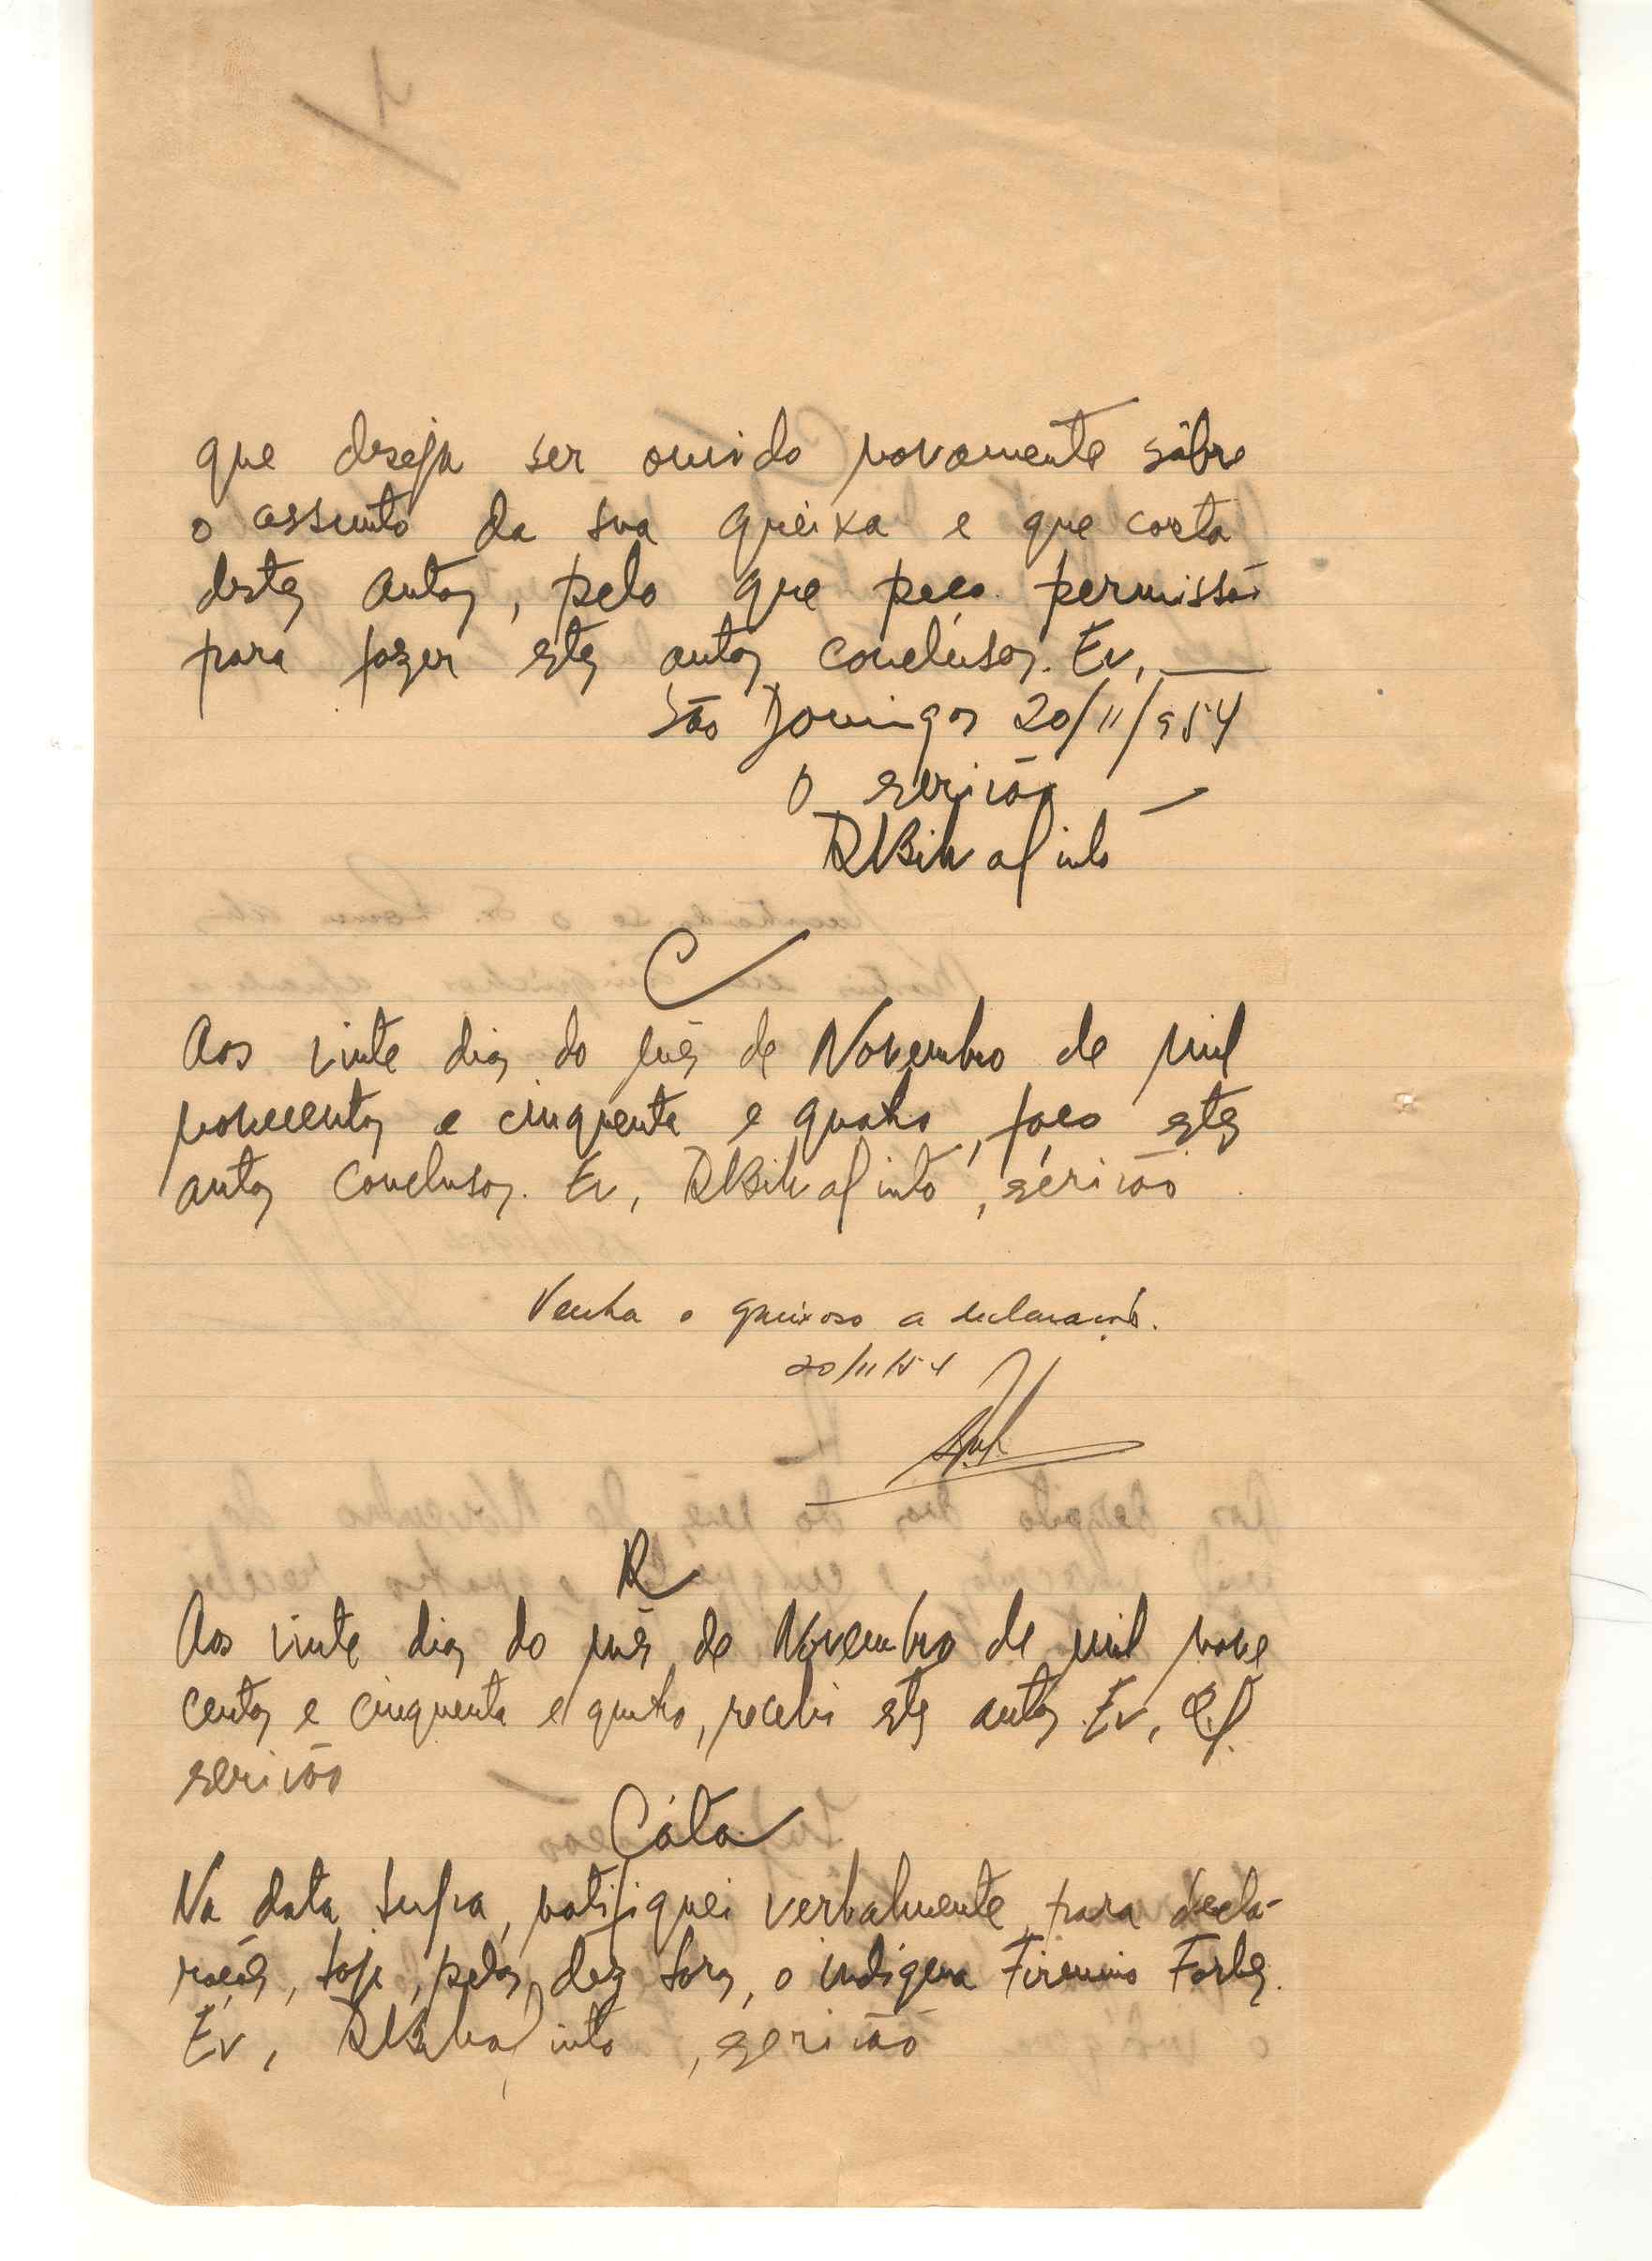 que deseja ser ouvido novamente sôbre
o assunto da sua queixa e que costa
destes autos, pelo que peço permissão
para fazer estes autos conclusos. Eu,
São Domingos 20/11/954
O escrivão
C
Aos vinte dias do mês de Novembro de mil
novecentos e cinquenta e quatro, faço estes
autos conclusos. Eu, escrivão
Venha o queixoso a declarações.
20/11/54
R
Aos vinte dias do mês de Novembro de mil nove
centos e cinquenta e quatro, recebi estes autos. Eu,
escrivão
Cóta
Na data supra, notifiquei verbalmente, para decla-
rações, hoje, pelas dez horas, o indígena Firmino Forbes.
Eu, escrivão